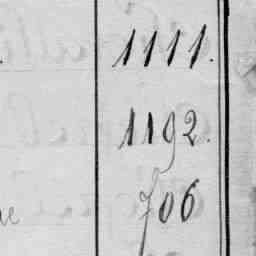 1111.
1192.
706